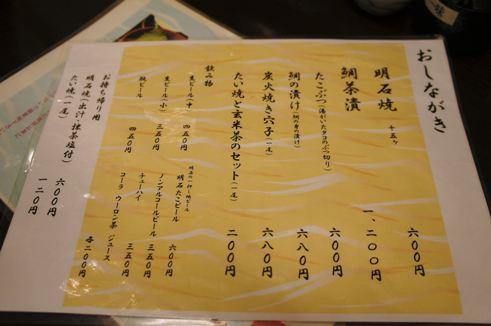 おしながき
明石焼 十五ヶ 六〇〇円
鯛茶漬 一、二〇〇円
たこぶつ(湯がいたタコのぶつ切り) 六〇〇円
鯛の漬け(鯛の身の漬け) 六八〇円
炭火焼き穴子(一尾) 六八〇円
たい焼と玄米茶のセット(一尾) 二〇〇円
飲み物
生ビール(中) 四五〇円
生ビール(小) 三五〇円
瓶ビール 四五〇円
明石たこビール 六〇〇円
ノンアルコールビール 三五〇円
チューハイ 三五〇円
コーラ ウーロン茶 ジュース 各二〇〇円
お持ち帰り用
明石焼(出汁・抹茶塩付) 六〇〇円
たい焼(一尾) 一二〇円